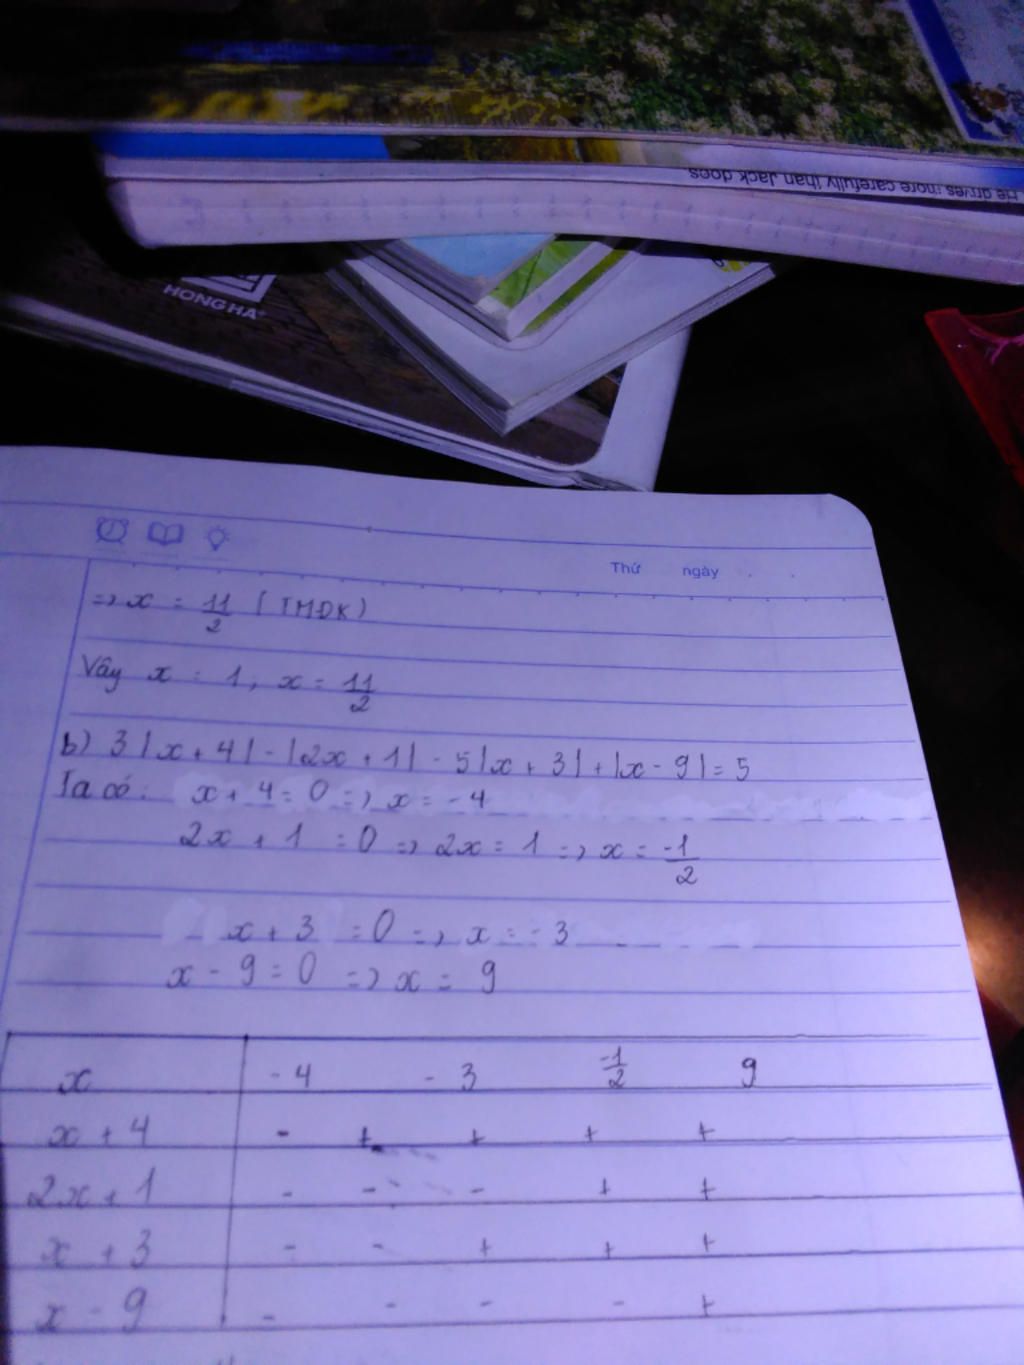 He drives more carefully than Jack does
HONG HA
Thứ ngày
=> x = 11/2 (TMĐK)
Vậy x = 1; x = 11/2
b) 3|x + 4| - |2x + 1| - 5|x + 3| + |x - 9| = 5
Ta có: x + 4 = 0 => x = -4
2x + 1 = 0 => 2x = 1 => x = -1/2
x + 3 = 0 => x = -3
x - 9 = 0 => x = 9
x -4 -3 -1/2 9
x + 4 - + + + +
2x + 1 - - - + +
x + 3 - - + + +
x - 9 - - - - +